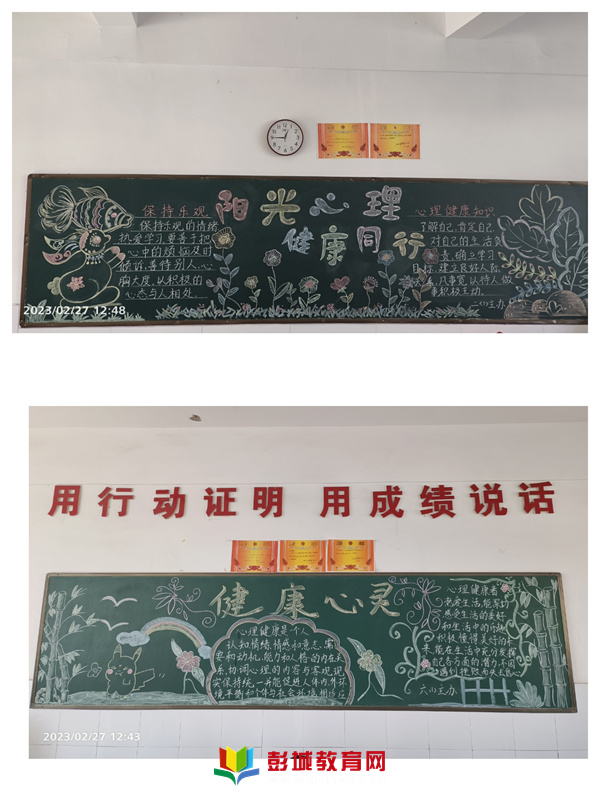 保持乐观
保持乐观的情绪
热爱学习,要善于把
心中的烦恼及时
倾诉,善待别人,心
胸大度,以积极的
心态与人相处。
阳光心理
健康同行
心理健康知识
了解自己,肯定自己
对自己的生活负
责,确立学习
目标,建立良好人际
关系,凡事宽以待人,做
事积极主动。
2023/02/27 12:48
用行动证明 用成绩说话
健康心灵
心理健康是个人
认知情绪,情感和意志,需
要和动机,能力和人格的内在关
系协调,心理的内容与客观现
实保持统一,并能促进人体内外环
境平衡和个体与社会环境相适应
心理健康者
热爱生活,能深切
感受生活的美好
和生活中的乐趣
积极憧憬美好的未
来,能在生活中充分发挥
自己各方面的潜力,不因
遇到挫败而失去信心
2023/02/27 12:43
彭城教育网